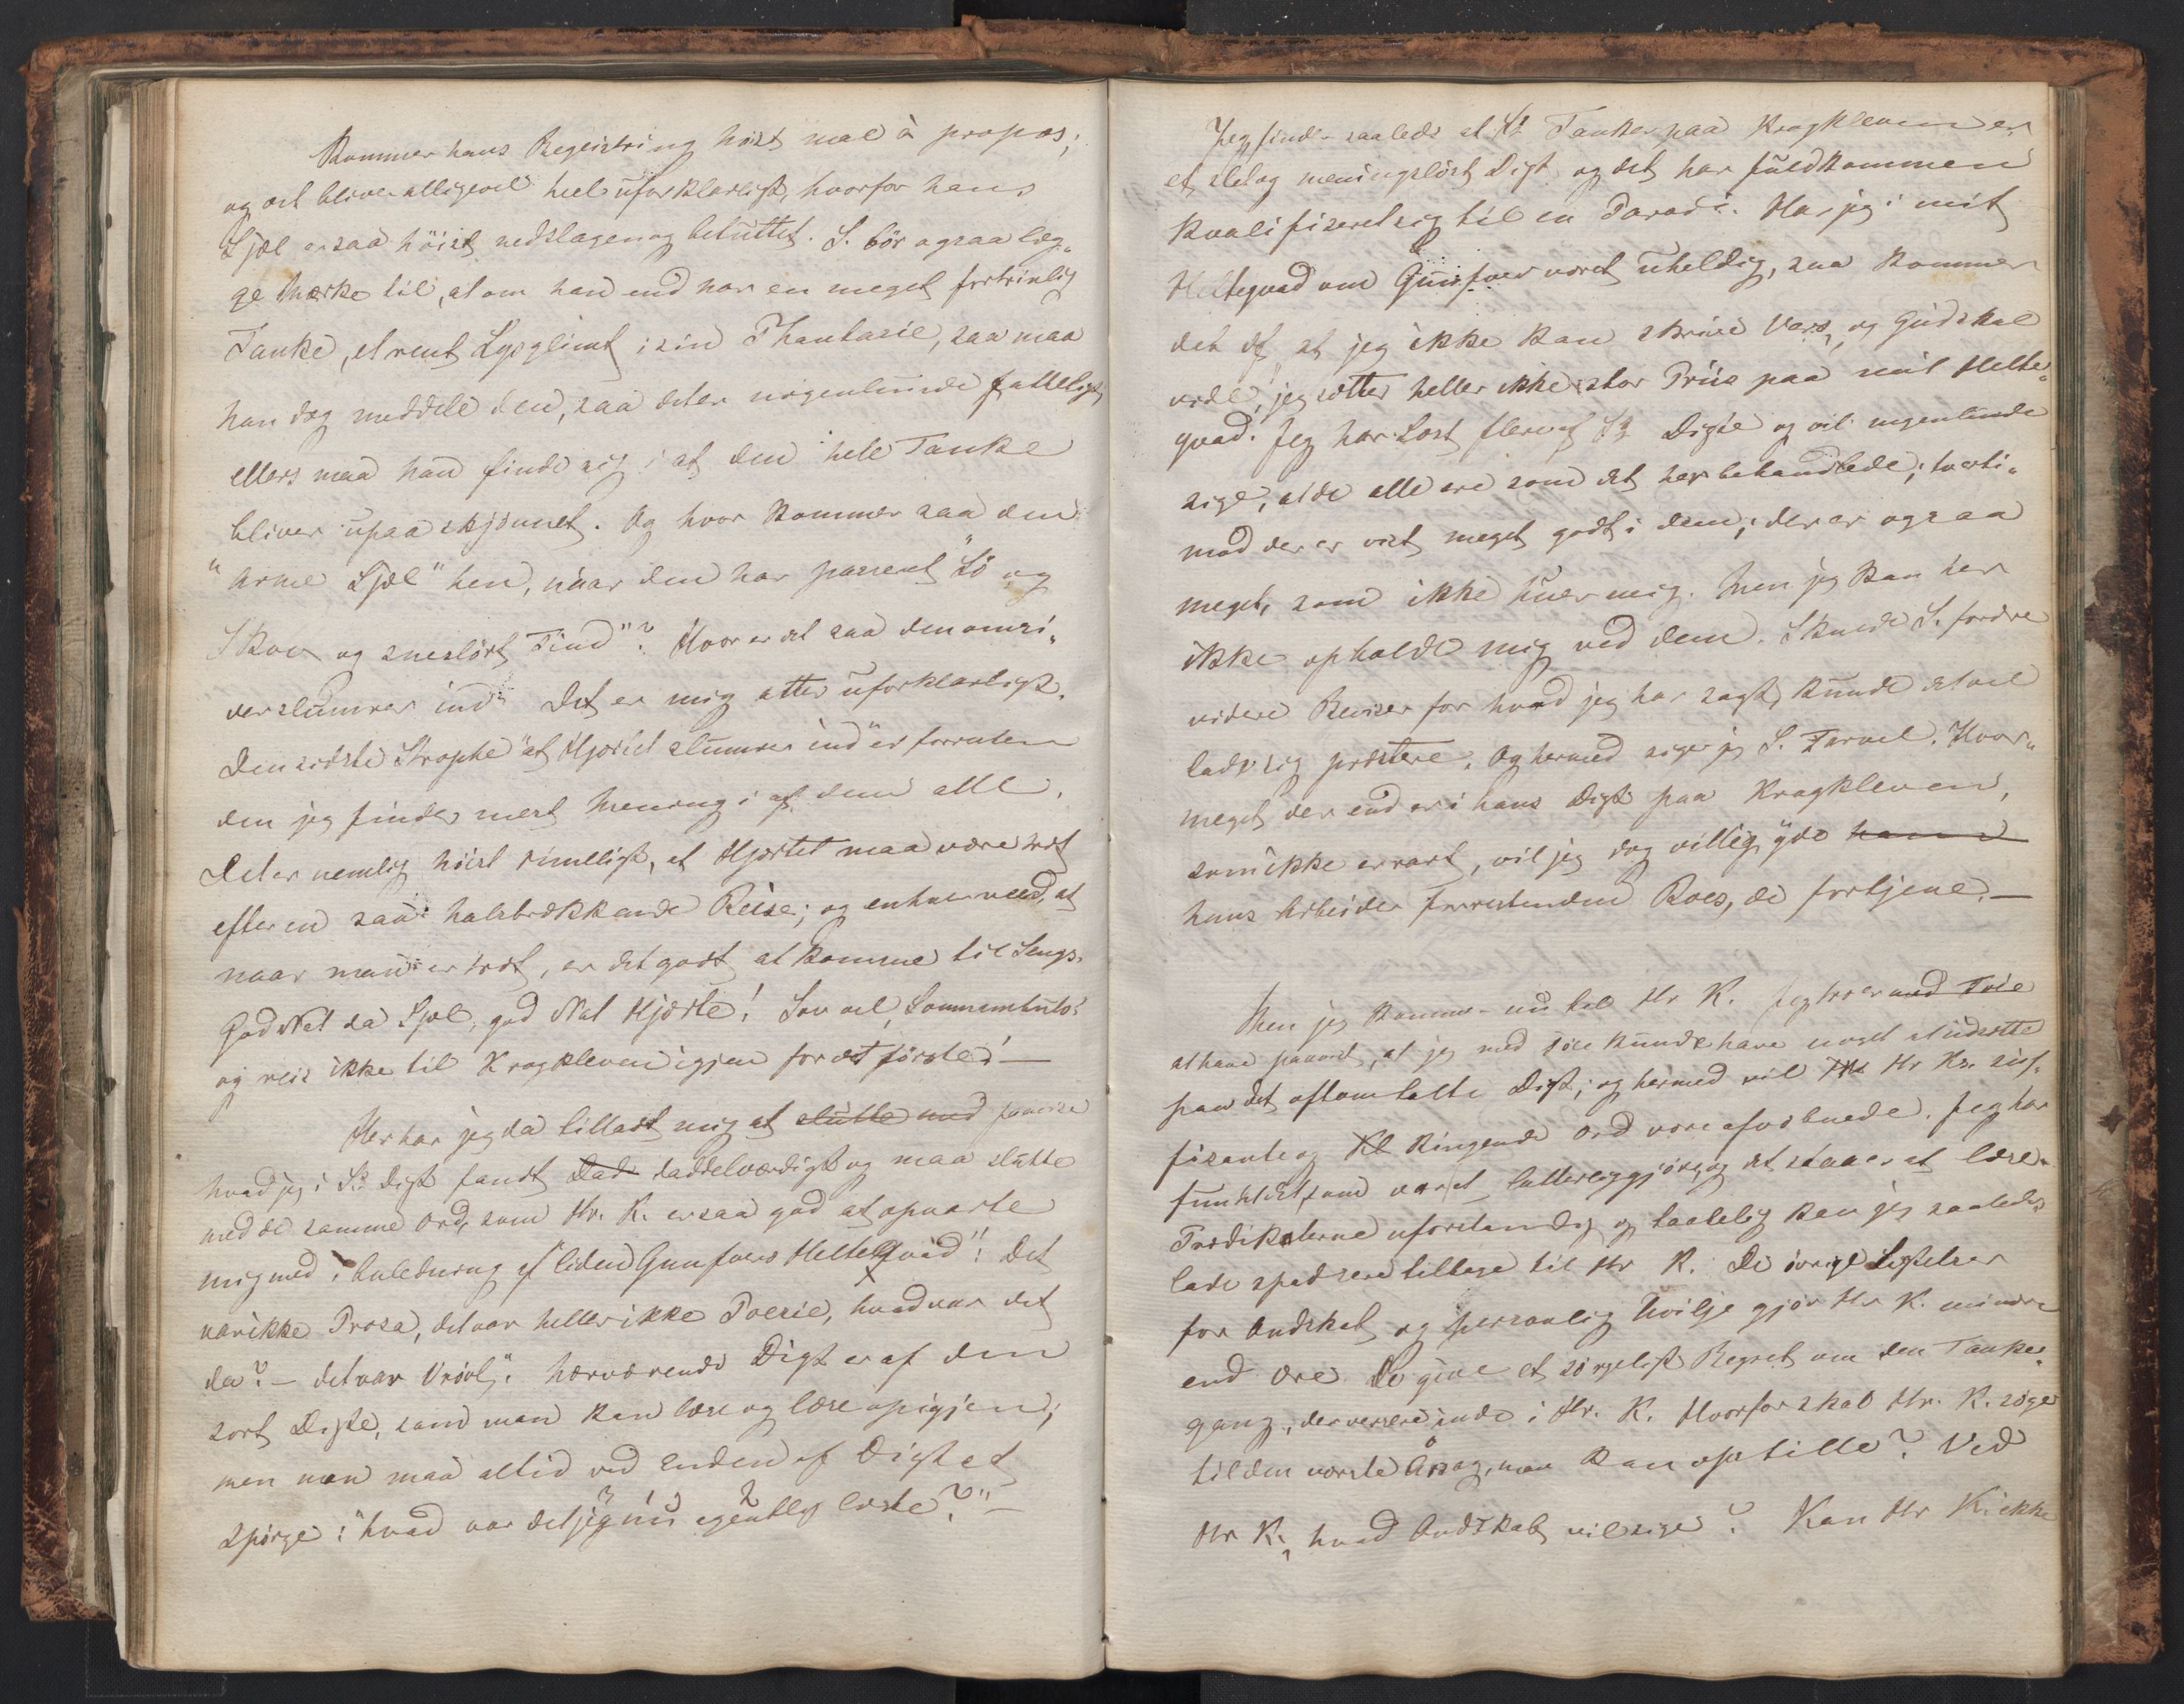 Kommer hans Begeistring høist mal à propos;
og det bliver alligevel heel uforklarligt, hvorfor hans
Sjæl er saa høist nedslagen og betuttet. S. bør ogsaa læg„
ge Mærke til, at om han end har en meget fortrinlig
Tanke, et rent Lysglimt i sin Phantasie, saa maa
han dog meddele den, saa det er nogenlunde fatteligt,
ellers maa han finde sig i at den hele Tanke
bliver upaaskjønnet. Og hvor kommer saa den
"arme Sjæl" hen, naar den har passeret "Sø og
Skov og sneslørt Tind"? Hvor er det saa den omsi„
der slumrer ind? Det er mig atter uforklarligt.
Den sidste Strophe "at Hjertet slumrer ind" er forresten
den jeg finder mest Mening i af dem alle.
Det er nemlig høist rimeligt, at Hjertet maa være træt
efter en saa halsbrækkende Reise; og enhver veed, at
naar man er træt, er det godt at komme til Sengs.
God Nat da Sjæl, god Nat Hjærte! Sov vel,
og reis ikke til Krogkleven igjen for det første! —
Her har jeg da tilladt mig at slutte med paavise
hvad jeg i S's Digt fandt Dad daddelværdigt og maa slutte
med de samme Ord, som Hr. K. er saa god at opvarte
mig med i Anledning af "liden Gunfvers Heltekvad": "Det
var ikke Prosa, det var heller ikke Poesie, hvad var det
da? — det var Vrøvl". Nærværende Digt er af den
sort Digte, som man kan læse og læse op igjen;
men man maa altid ved Enden af Digtet
spørge: "hvad var det jeg nu egentlig læste?" —
Jeg finder saaledes at S's Tanker paa Krogkleven er
et slet og meningsløst Digt og det har fuldkommen
kvalifiseret sig til en Parodi. Har jeg i mit
Helteqvad om Gunfver været uheldig, saa kommer
det af, at jeg ikke kan skrive Vers, og Gud skal
vide, jeg sætter heller ikke stor Priis paa mit Helte„
qvad. Jeg har læst flere af S's Digte og vil ingenlunde
sige, at de alle ere som det her behandlede; tverti„
mod der er vist meget godt i dem; der er ogsaa
meget, som ikke huer mig. Men jeg kan her
ikke opholde mig ved dem. Skulde S. fordre
videre Beviser for hvad jeg har sagt, kunde det vel
lade sig præstere. Og hermed siger jeg S. Farvel. Hvor„
meget der end er i hans Digt paa Krogkleven,
som ikke er rart, vil jeg dog villig yde ham
hans Arbeider forresten den Roes, de fortjene. —
Men jeg kommer nu til Hr K. Jeg troer med Føie
at have paavist, at jeg med Føie kunde have noget at udsætte
paa det oftomtalte Digt; og hermed vil Hr Ks. sif„
fisante og Kl klingende Ord være afvæbnede. Jeg har
fundet det, som var at latterliggjøre, og det staaer at læse.
Prædikaterne uforstandig og taabelig kan jeg saaledes
lade spadsere tilbage til Hr K. De øvrige Sigtelser
for Ondskab og personlig Uvilje gjør Hr K. mindre
end Ære. De give et sørgeligt Begreb om den Tanke„
gang, der versere inde i Hr. K. Hvorfor skal Hr. K. søge
til den værste Årsag, man kan opstille? Ved
Hr K., hvad Ondskab vil sige? Kan Hr K. ikke